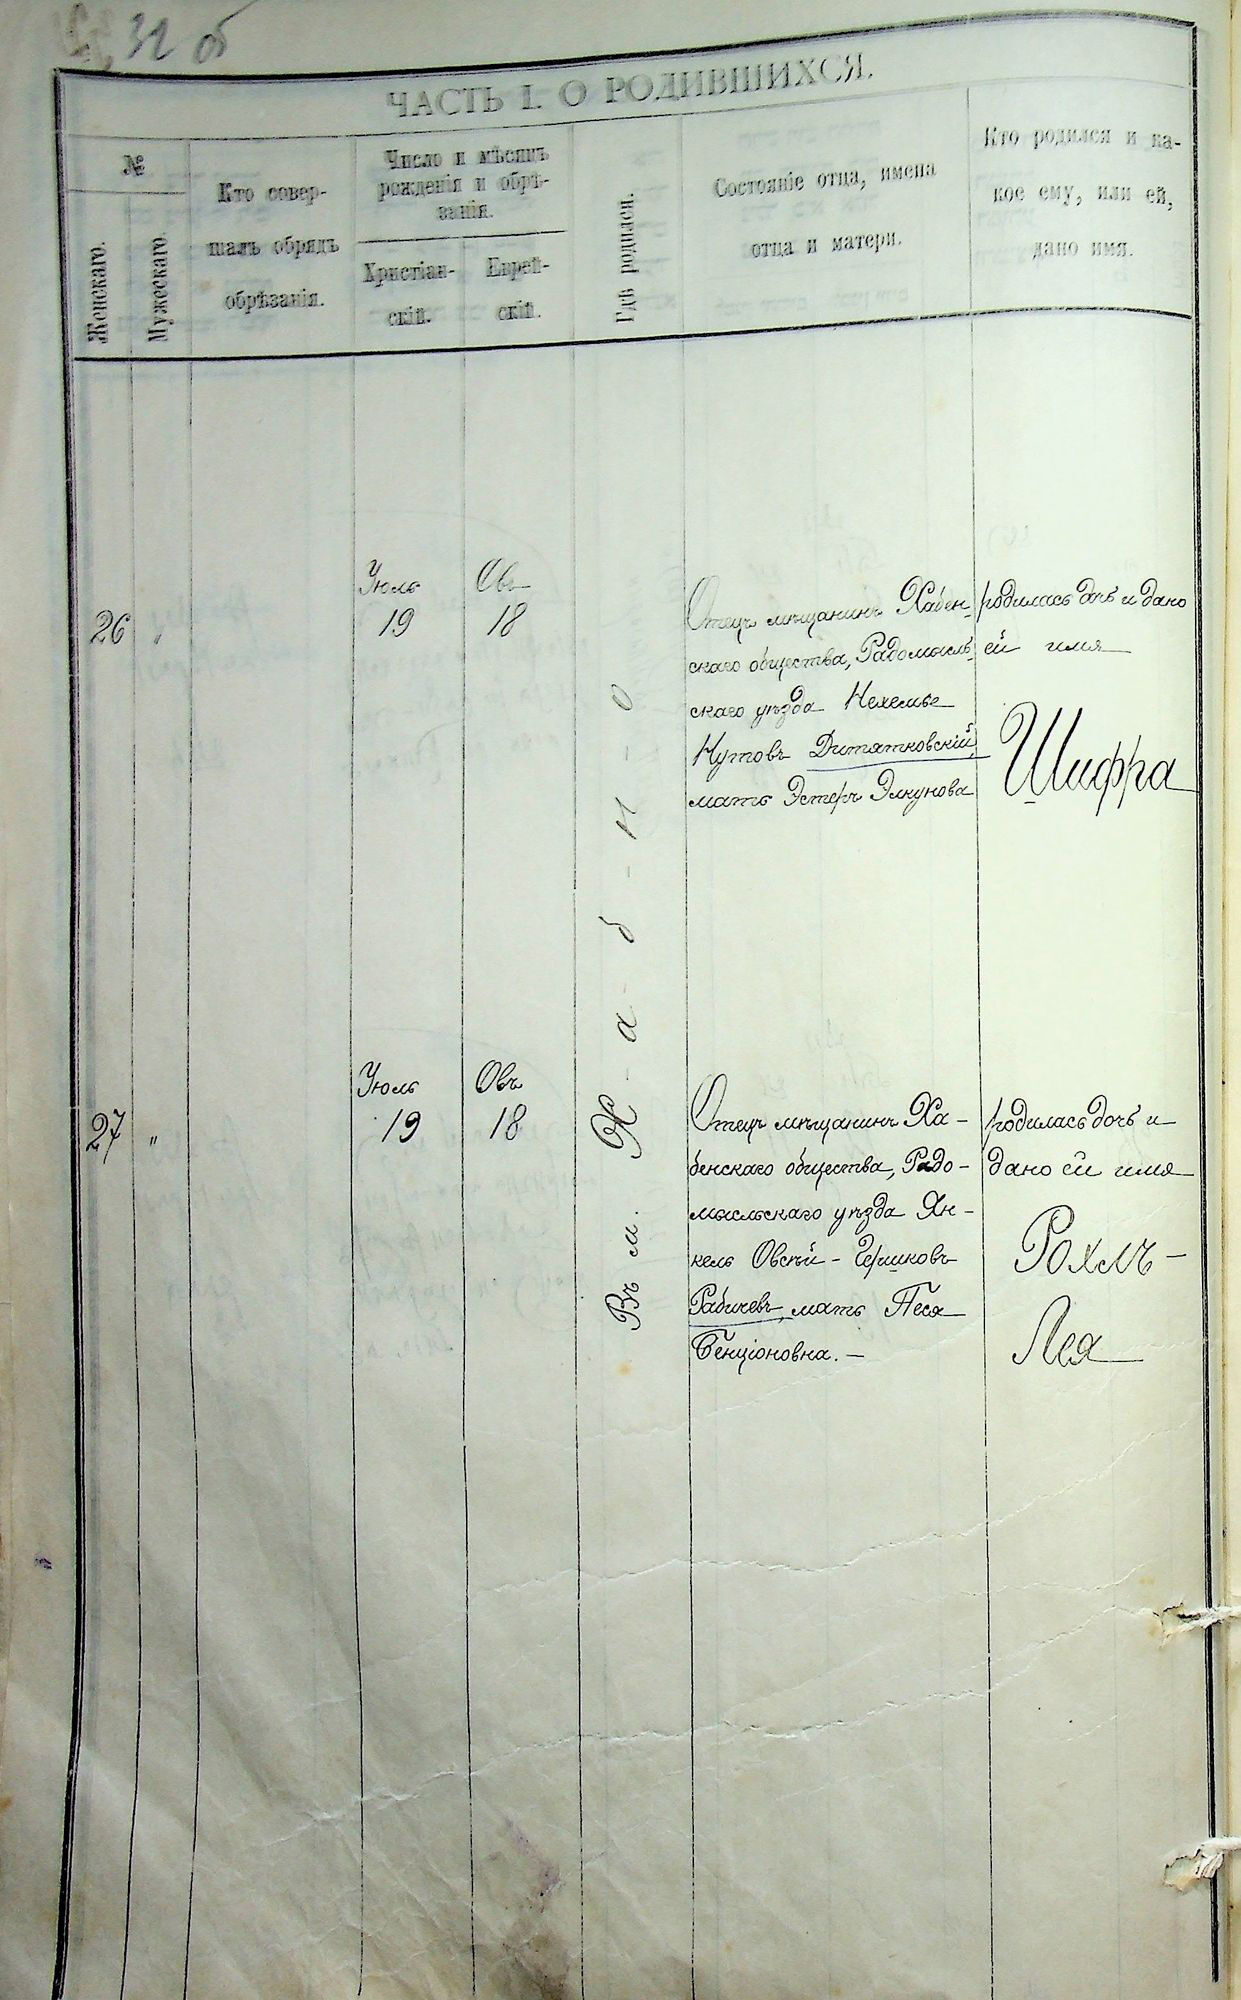 32 об
ЧАСТЬ I. О РОДИВШИХСЯ.
№
Женскаго.
Мужескаго.
Кто совер-
шалъ обрядъ
обрѣзанія.
Число и мѣсяцъ
рожденія и обрѣ-
занія.
Христіан-
скій.
Еврей-
скій.
Гдѣ родился.
Состояніе отца, имена
отца и матери.
Кто родился и ка-
кое ему, или ей,
дано имя.
Въ м. Х-а-б-н-о
26 „
Іюль
19
Овъ
18
Отецъ мѣщанинъ Хабен-
скаго общества, Радомысль-
скаго уѣзда Нехемье
Нутовъ Дитятковскій,
мать Эстеръ Элкунова
родилась дочь и дано
ей имя
Шифра
27 „
Іюль
19
Овъ
18
Отецъ мѣщанинъ Ха-
бенскаго общества, Радо-
мысльскаго уѣзда Ян-
кель Овсѣй-Гершковъ
Рабичевъ, мать Песя
Бенціоновна. —
родилась дочь и
дано ей имя
Рохль-
Лея